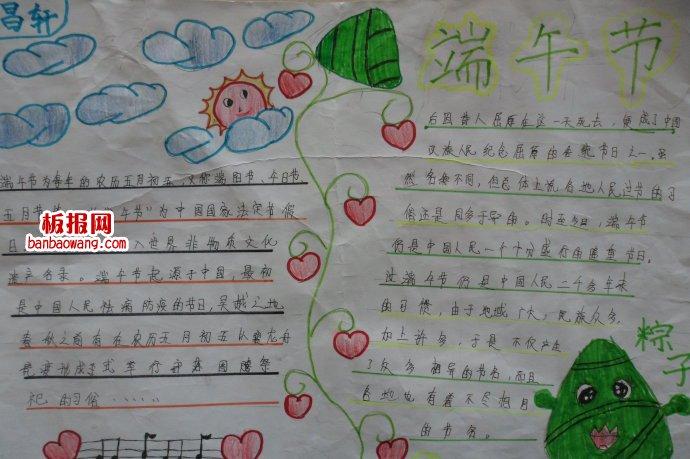 昌轩
端午节
端午节为每年的农历五月初五,又称端阳节、午日节
五月节
午节”为中国国家法定节假
日
入世界非物质文化
遗产名录。端午节起源于中国,最初
是中国人民祛病防疫的节日,吴越之地
春秋之前有在农历五月初五以
龙舟
形式举行部落图腾祭
祀的习俗……
板报网
banbaowang.com
后因诗人屈原在这一天死去,便成了中国
汉族人民纪念屈原的传统节日之一。虽
然名称不同,但总体上说,各地人民过节的习
俗还是同多于异的。时至今日,端午节
仍是中国人民一个十分盛行的隆重节日。
过端午节
是中国人民二千多年来
的习惯,由于地域广大,民族众多,
加上许多
于是不仅产生
了众多相异的节名,而且
各地也有着不尽相同
的节俗。
粽子